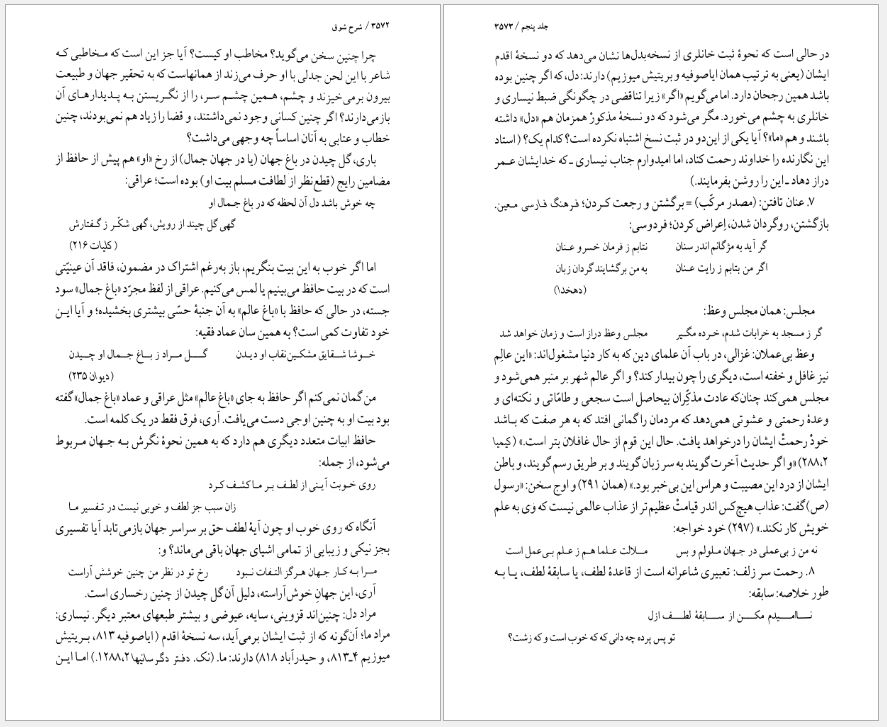 ۳۵۷۲ / شرح شوق
چرا چنین سخن می‌گوید؟ مخاطب او کیست؟ آیا جز این است که مخاطبی که
شاعر با این لحن جدلی با او حرف می‌زند از همانهاست که به تحقیر جهان و طبیعت
بیرون برمی‌خیزند و چشم، همین چشم سر، را از نگریستن به پدیدارهای آن
بازمی‌دارند؟ اگر چنین کسانی وجود نمی‌داشتند، و قضا را زیاد هم نمی‌بودند، چنین
خطاب و عتابی به آنان اساساً چه وجهی می‌داشت؟
باری، گل چیدن در باغ جهان (یا در جهان جمال) از رخ «او» هم پیش از حافظ از
مضامین رایج (قطع‌نظر از لطافت مسلم بیت او) بوده است؛ عراقی:
چه خوش باشد دل آن لحظه که در باغ جمال او
گهی گل چیند از رویش، گهی شکّر ز گفتارش
(کلیات ۲۱۶)
اما اگر خوب به این بیت بنگریم، باز به‌رغم اشتراک در مضمون، فاقد آن عینیّتی
است که در بیت حافظ می‌بینیم یا لمس می‌کنیم. عراقی از لفظ مجرّد «باغ جمال» سود
جسته، در حالی که حافظ با «باغ عالم» به آن جنبهٔ حسّی بیشتری بخشیده؛ و آیا این
خود تفاوت کمی است؟ به همین سان عماد فقیه:
خوشا شقایق مشکین‌نقاب او دیدن گل مراد ز باغ جمال او چیدن
(دیوان ۲۳۵)
من گمان نمی‌کنم اگر حافظ به جای «باغ عالم» مثل عراقی و عماد «باغ جمال» گفته
بود بیت او به چنین اوجی دست می‌یافت. آری، فرق فقط در یک کلمه است.
حافظ ابیات متعدد دیگری هم دارد که به همین نحوهٔ نگرش به جهان مربوط
می‌شود، از جمله:
روی خوبت آیتی از لطف بر ما کشف کرد
زان سبب جز لطف و خوبی نیست در تفسیر ما
آنگاه که روی خوب او چون آیهٔ لطف حق بر سراسر جهان بازمی‌تابد آیا تفسیری
بجز نیکی و زیبایی از تمامی اشیای جهان باقی می‌ماند؟ و:
مرا به کار جهان هرگز التفات نبود رخ تو در نظر من چنین خوشش آراست
آری، این جهان خوش‌آراسته، دلیل آن گل چیدن از چنین رخساری است.
مراد دل: چنین‌اند قزوینی، سایه، عیوضی و بیشتر طبعهای معتبر دیگر. نیساری:
مراد ما؛ آن‌گونه که از ثبت ایشان برمی‌آید، سه نسخهٔ اقدم (ایاصوفیه ۸۱۳، بریتیش
میوزیم ۴ـ۸۱۳، و حیدرآباد ۸۱۸) دارند: ما. (نک. دفتر دگرسانیها ۱۲۸۸،۲.) اما این
جلد پنجم / ۳۵۷۳
در حالی است که نحوهٔ ثبت خانلری از نسخه‌بدل‌ها نشان می‌دهد که دو نسخهٔ اقدم
ایشان (یعنی به ترتیب همان ایاصوفیه و بریتیش میوزیم) دارند: دل، که اگر چنین بوده
باشد همین رجحان دارد. اما می‌گویم «اگر» زیرا تناقضی در چگونگی ضبط نیساری و
خانلری به چشم می‌خورد. مگر می‌شود که دو نسخهٔ مذکورْ همزمان هم «دل» داشته
باشند و هم «ما»؟ آیا یکی از این‌دو در ثبت نسخ اشتباه نکرده است؟ کدام یک؟ (استاد
این نگارنده را خداوند رحمت کناد، اما امیدوارم جناب نیساری ـ که خدایشان عمر
دراز دهاد ـ این را روشن بفرمایند.)
۷. عنان تافتن: (مصدر مرکّب) = برگشتن و رجعت کردن؛ فرهنگ فارسی معین.
بازگشتن، روگردان شدن، اِعراض کردن؛ فردوسی:
گر آید به مژگانم اندر سنان نتابم ز فرمان خسرو عنان
اگر من بتابم ز رایت عنان به من برگشایند گردان زبان
(دهخدا)
مجلس: همان مجلس وعظ:
گر ز مسجد به خرابات شدم، خرده مگیر مجلس وعظ دراز است و زمان خواهد شد
وعظ بی‌عملان: غزالی، در باب آن علمای دین که به کار دنیا مشغول‌اند: «این عالِم
نیز غافل و خفته است، دیگری را چون بیدار کند؟ و اگر عالم شهر بر منبر همی‌شود و
مجلس همی‌کند چنان‌که عادت مذکّران بیحاصل است سجعی و طامّاتی و نکته‌ای و
وعدهٔ رحمتی و عشوتی همی‌دهد که مردمان را گمانی افتد که به هر صفت که باشد
خودْ رحمتْ ایشان را درخواهد یافت. حال این قوم از حال غافلان بتر است.» (کیمیا
۲۸۸،۲) «و اگر حدیث آخرت گویند به سر زبان گویند و بر طریق رسم گویند، و باطن
ایشان از درد این مصیبت و هراس این بی‌خبر بود.» (همان ۲۹۱) و اوج سخن: «رسول
(ص) گفت: عذاب هیچ‌کس اندر قیامتْ عظیم‌تر از عذاب عالمی نیست که وَی به علم
خویش کار نکند.» (۲۹۷) خود خواجه:
نه من ز بی‌عملی در جهان ملولم و بس ملالت علما هم ز علم بی‌عمل است
۸. رحمت سر زلف: تعبیری شاعرانه است از قاعدهٔ لطف، یا سابقهٔ لطف، یا به
طور خلاصه: سابقه:
ناامیدم مکن از سابقهٔ لطف ازل
تو پس پرده چه دانی که که خوب است و که زشت؟